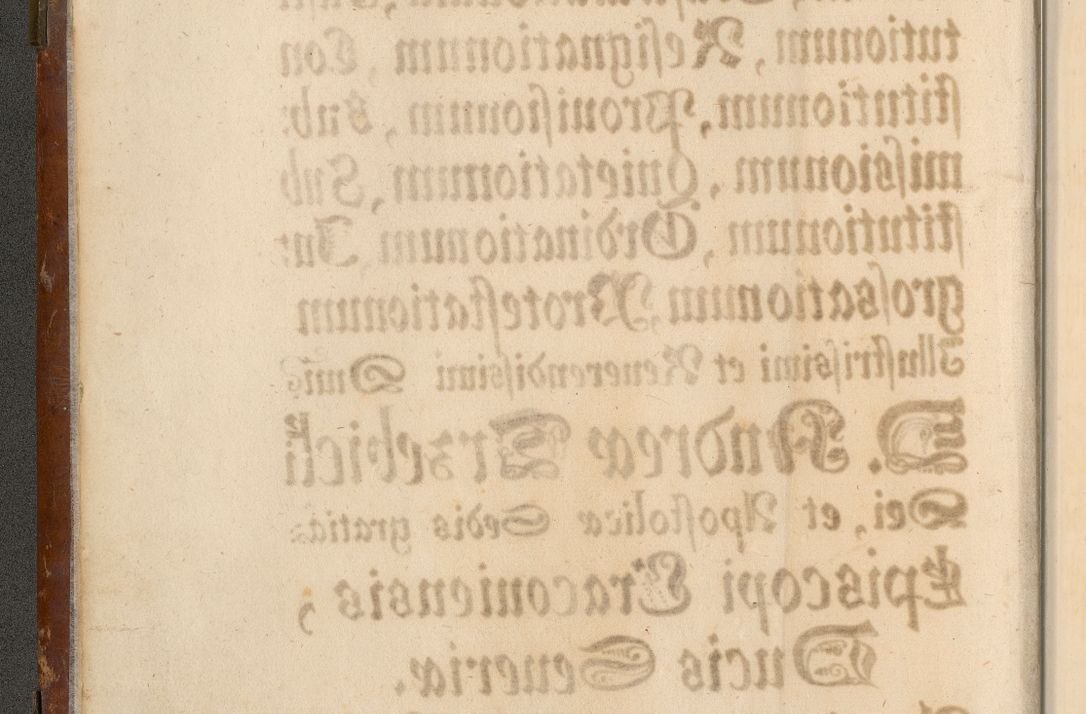 tutionum, Resignationum, Con
stitutionum, Prouisionum, Sub:
missionum, Quietationum, Sub
stitutionum, Ordinationum, In:
grossationum, Protestationum
Illustrissimi et Reuerendissimi Dnı̃
D. Andreæ Trzebicki
Dei, et Apostolicæ Sedis gratia
Episcopi Cracouiensis,
Ducis Seueriæ.